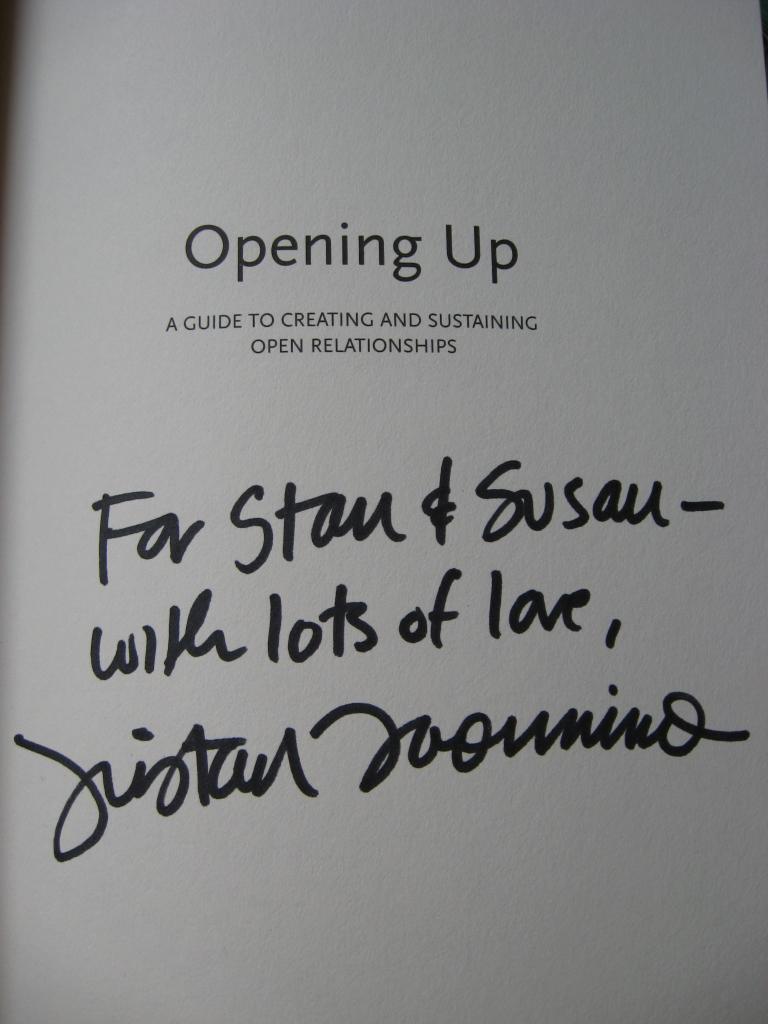 Opening Up
A GUIDE TO CREATING AND SUSTAINING
OPEN RELATIONSHIPS
For Stan & Susan -
with lots of love,
Tristan Taormino